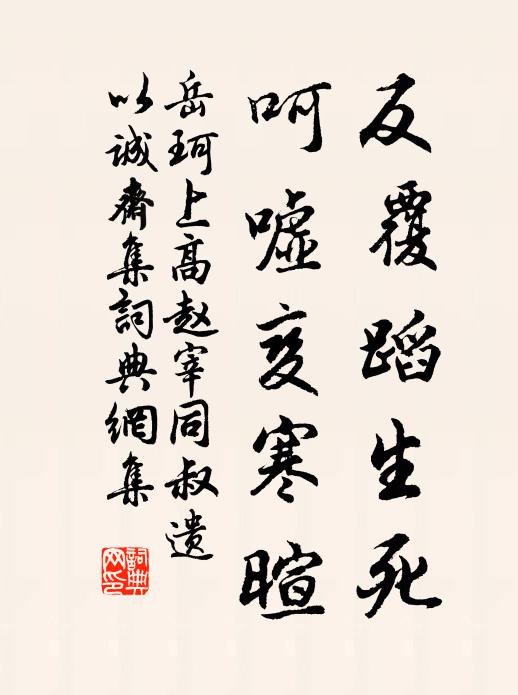 反覆蹈生死
呵嘘变寒暄
岳珂上高赵宰同叔遗
以诚齋集詞典網集
詞典网印